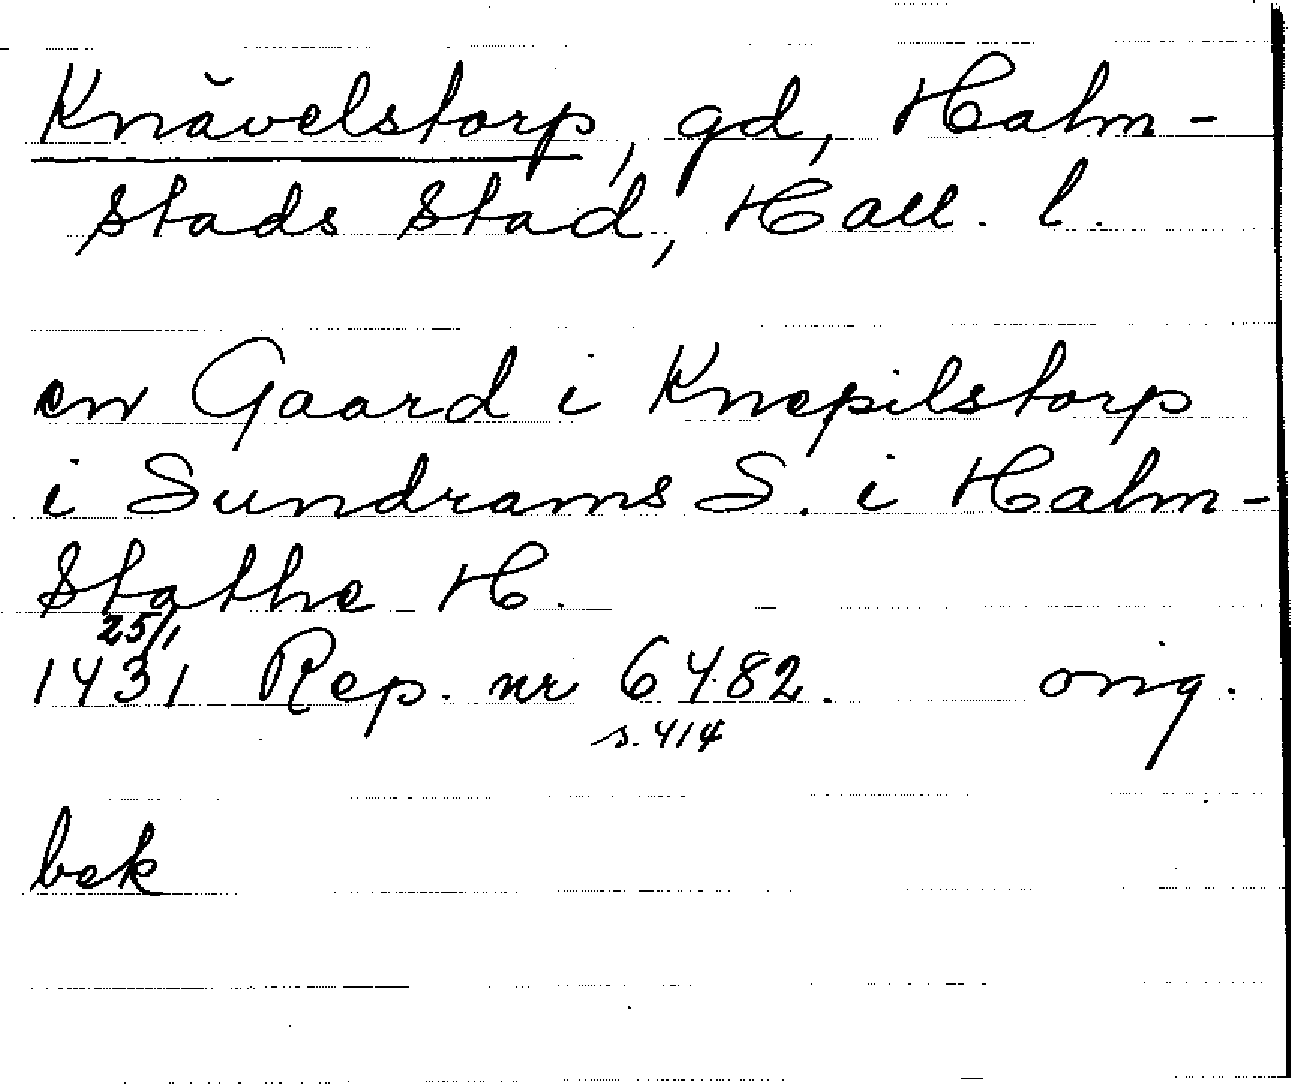 Knävelstorp, gd, Halm-
stads stad, Hall. l.
en Gaard i Knepilstorp
i Sundrams S. i Halm-
stathe H.
25/1
1431 Rep. nr 6482. orig.
s. 414
bek